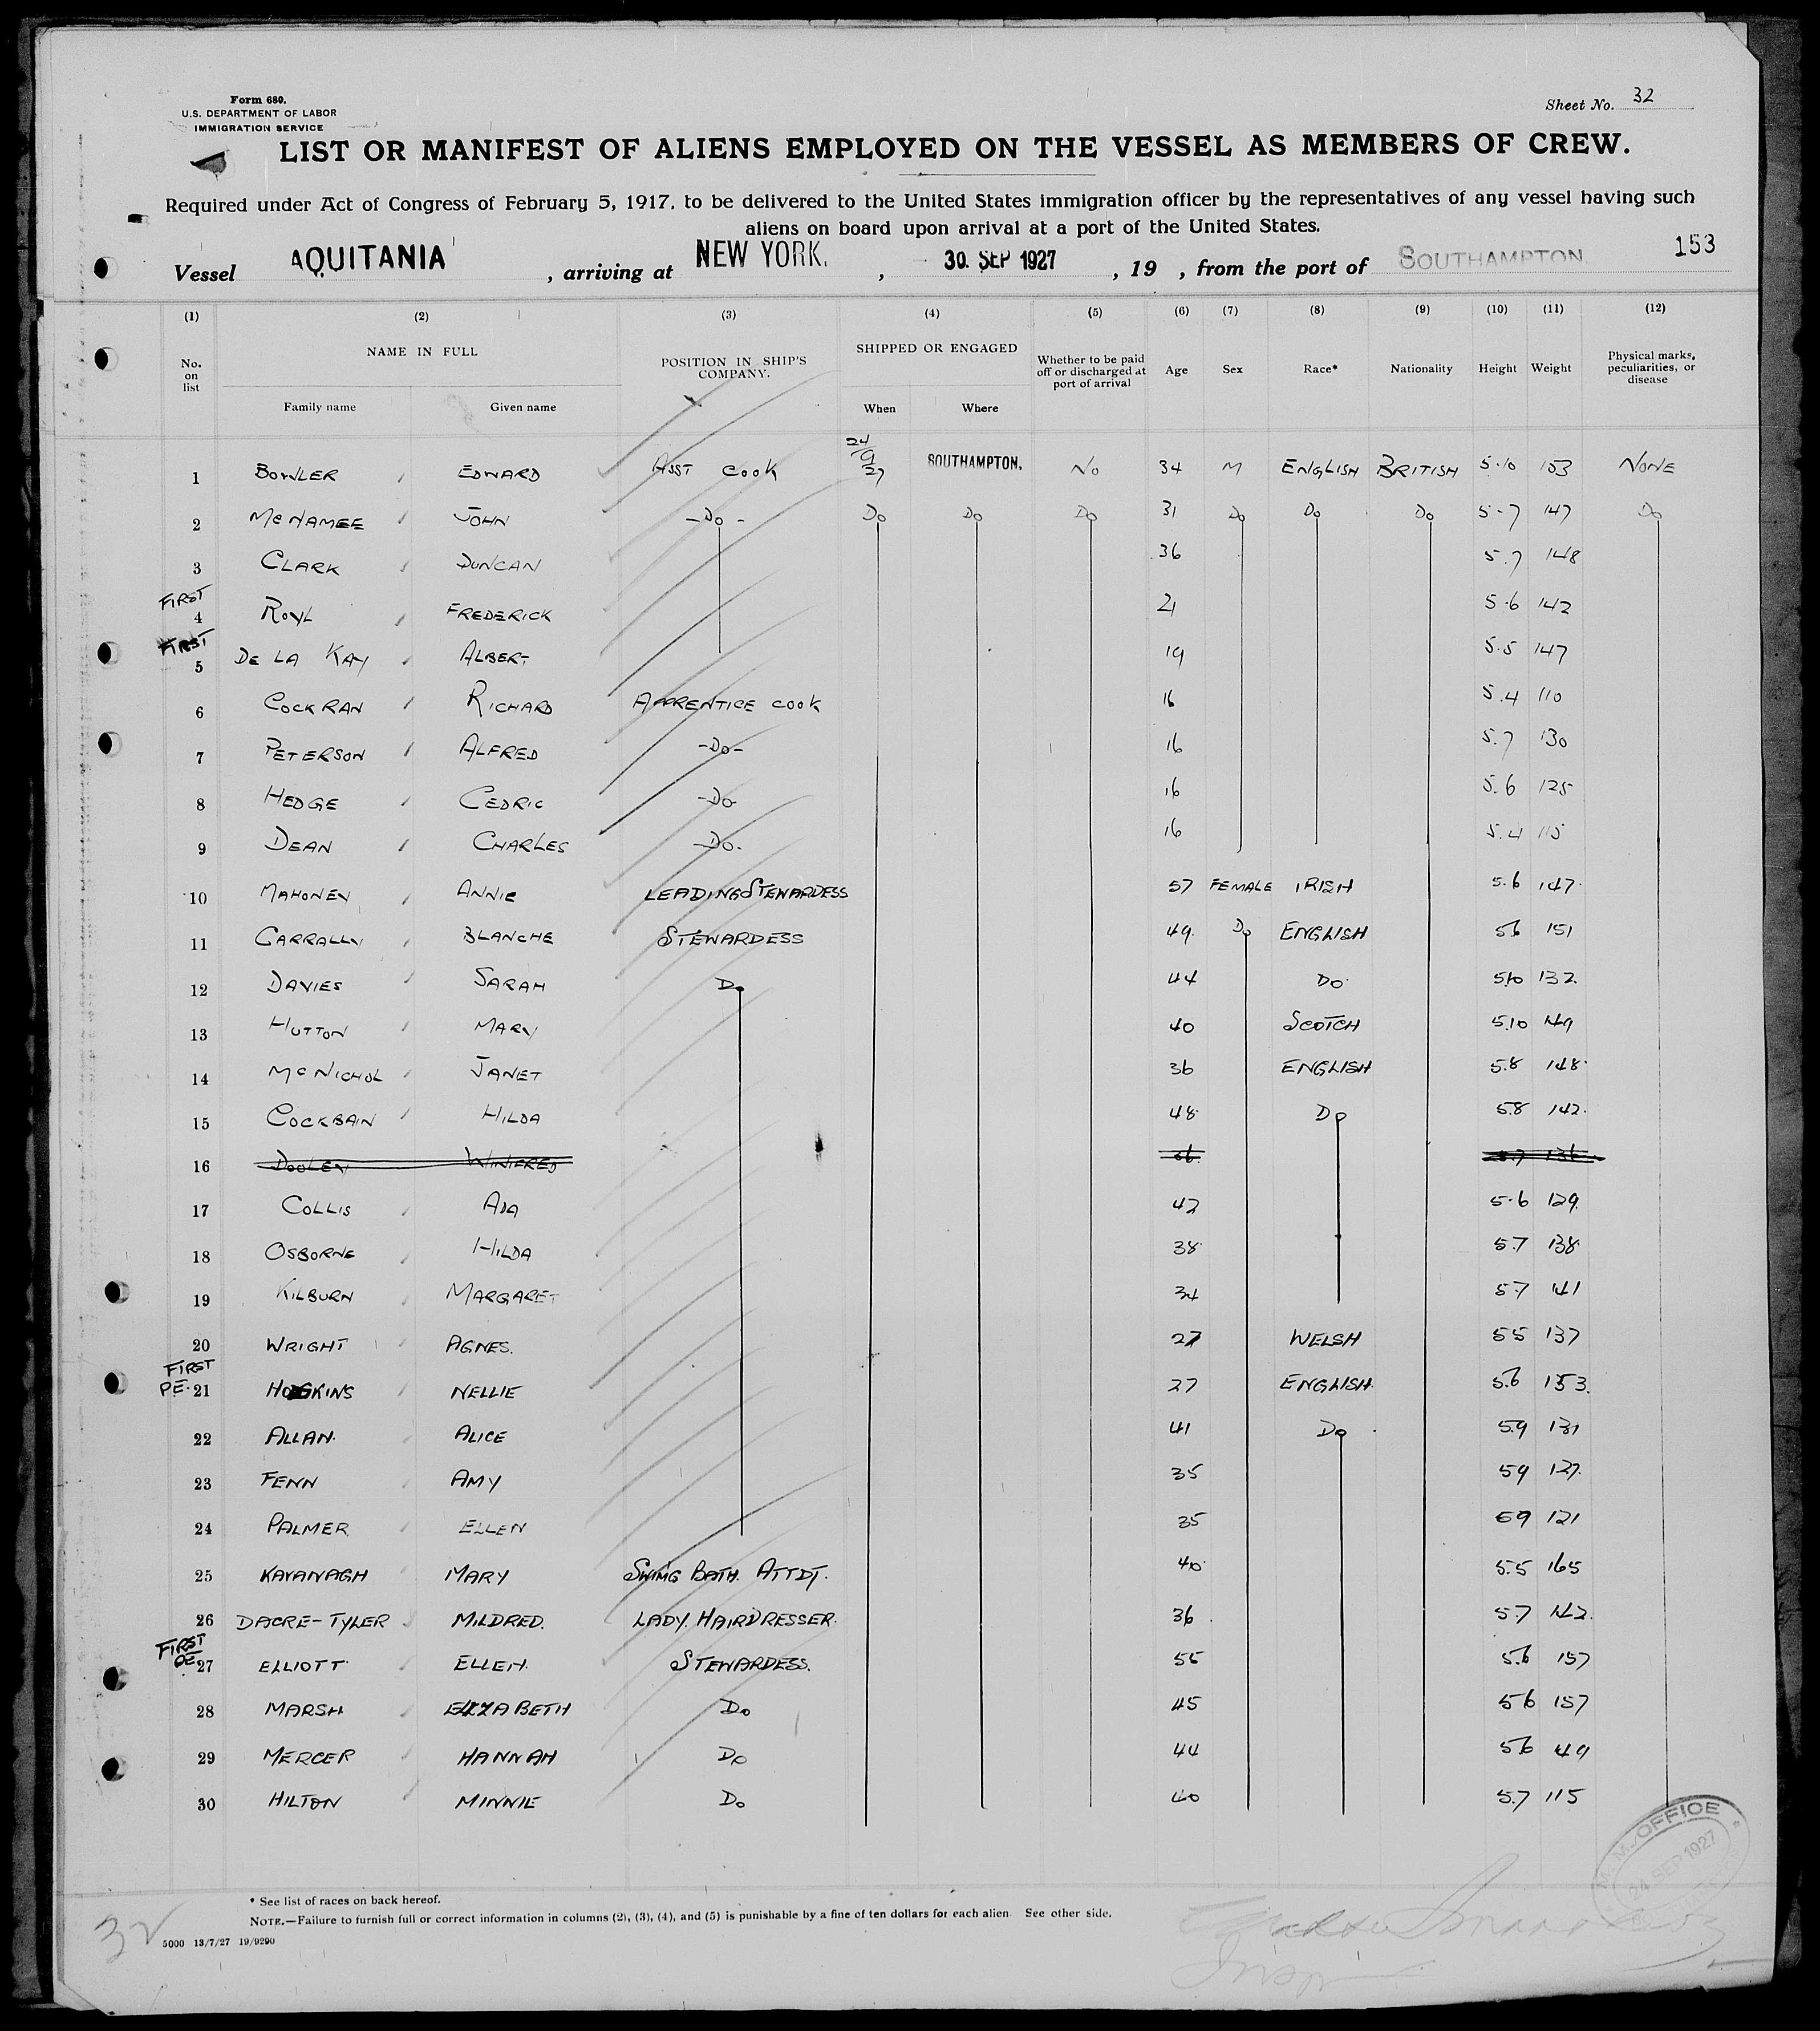 Form 680.
U.S. DEPARTMENT OF LABOR
IMMIGRATION SERVICE
Sheet No. 32
LIST OR MANIFEST OF ALIENS EMPLOYED ON THE VESSEL AS MEMBERS OF CREW.
Required under Act of Congress of February 5, 1917, to be delivered to the United States immigration officer by the representatives of any vessel having such
aliens on board upon arrival at a port of the United States.
153
Vessel AQUITANIA, arriving at NEW YORK., 30. SEP 1927, 19 , from the port of SOUTHAMPTON
(1) (2) (3) (4) (5) (6) (7) (8) (9) (10) (11) (12)
No. on list NAME IN FULL Family name Given name POSITION IN SHIP'S COMPANY. SHIPPED OR ENGAGED When Where Whether to be paid off or discharged at port of arrival Age Sex Race* Nationality Height Weight Physical marks, peculiarities, or disease
1 BOWLER EDWARD ASST COOK 24/9/27 SOUTHAMPTON. NO 34 M ENGLISH BRITISH 5.10 153 NONE
2 McNAMEE JOHN -DO- DO DO DO 31 DO DO DO 5-7 147 DO
3 CLARK DUNCAN 36 5.7 148
FIRST
4 ROYL FREDERICK 21 5.6 142
FIRST
5 DE LA KAY ALBERT 19 5.5 147
6 COCKRAN RICHARD APPRENTICE COOK 16 5.4 110
7 PETERSON ALFRED -DO- 16 5.7 130
8 HEDGE CEDRIC -DO- 16 5.6 125
9 DEAN CHARLES -DO. 16 5.4 115
10 MAHONEY ANNIE LEADING STEWARDESS 57 FEMALE IRISH 5.6 147.
11 CARRALLY BLANCHE STEWARDESS 49. DO ENGLISH 56 151
12 DAVIES SARAH DO 44 DO. 5.10 132.
13 HUTTON MARY 40 SCOTCH 5.10 149
14 McNICHOL JANET 36 ENGLISH 5.8 148.
15 COCKBAIN HILDA 48. DO 5.8 142.
16 DOOLEY WINIFRED 36. 5.7 136
17 COLLIS ADA 42 5.6 129.
18 OSBORNE HILDA 38. 5.7 138.
19 KILBURN MARGARET 34 5.7 141
20 WRIGHT AGNES. 27 WELSH 55 137
FIRST
PE. 21 HODGKINS NELLIE 27 ENGLISH. 5.6 153.
22 ALLAN. ALICE 41 DO 5.9 131
23 FENN AMY 35 59 127.
24 PALMER. ELLEN 35 59 121
25 KAVANAGH MARY SWIMG BATH. ATTDT. 40. 5.5 165
26 DACRE-TYLER MILDRED. LADY. HAIRDRESSER. 36. 5.7 142.
FIRST
PE. 27 ELLIOTT ELLEN. STEWARDESS. 55 5.6 157
28 MARSH ELIZABETH DO 45 56 157
29 MERCER HANNAH DO 44 56 149
30 HILTON MINNIE DO 40 5.7 115
M.M. OFFICE
24 SEP 1927
* See list of races on back hereof.
NOTE.—Failure to furnish full or correct information in columns (2), (3), (4), and (5) is punishable by a fine of ten dollars for each alien. See other side.
32
5000 13/7/27 19/9290